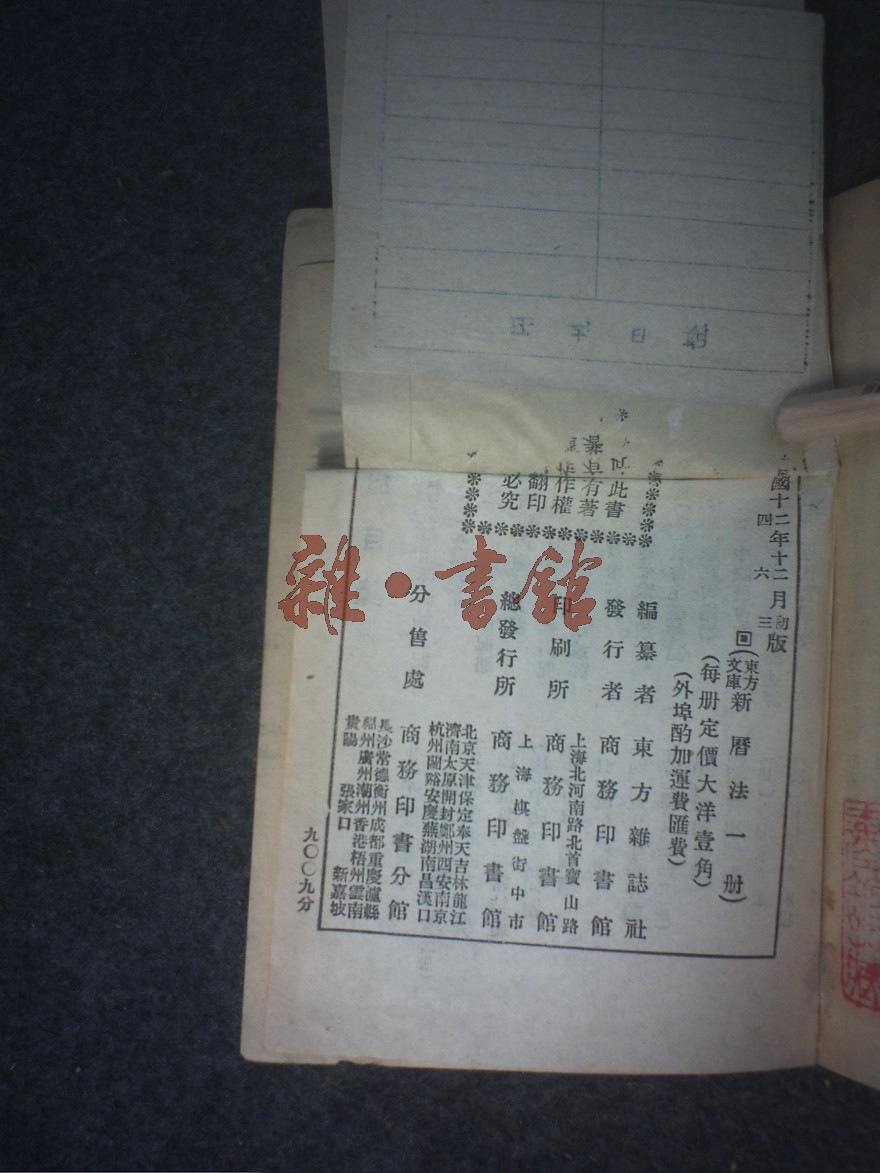 國十二年十二月初版
四 六 三
回(東方文庫)新曆法一册)
(每册定價大洋壹角)
(外埠酌加運費匯費)
此書
有著
作權
翻印
必究
編纂者 東方雜誌社
發行者 商務印書館
上海北河南路北首寶山路
印刷所 商務印書館
上海棋盤街中市
總發行所 商務印書館
北京天津保定奉天吉林龍江
濟南太原開封鄭州西安南京
杭州蘭谿安慶蕪湖南昌漢口
分售處 商務印書分館
長沙常德衡州成都重慶瀘縣
福州廣州潮州香港梧州雲南
貴陽 張家口 新嘉坡
九〇〇九分
雜·書館